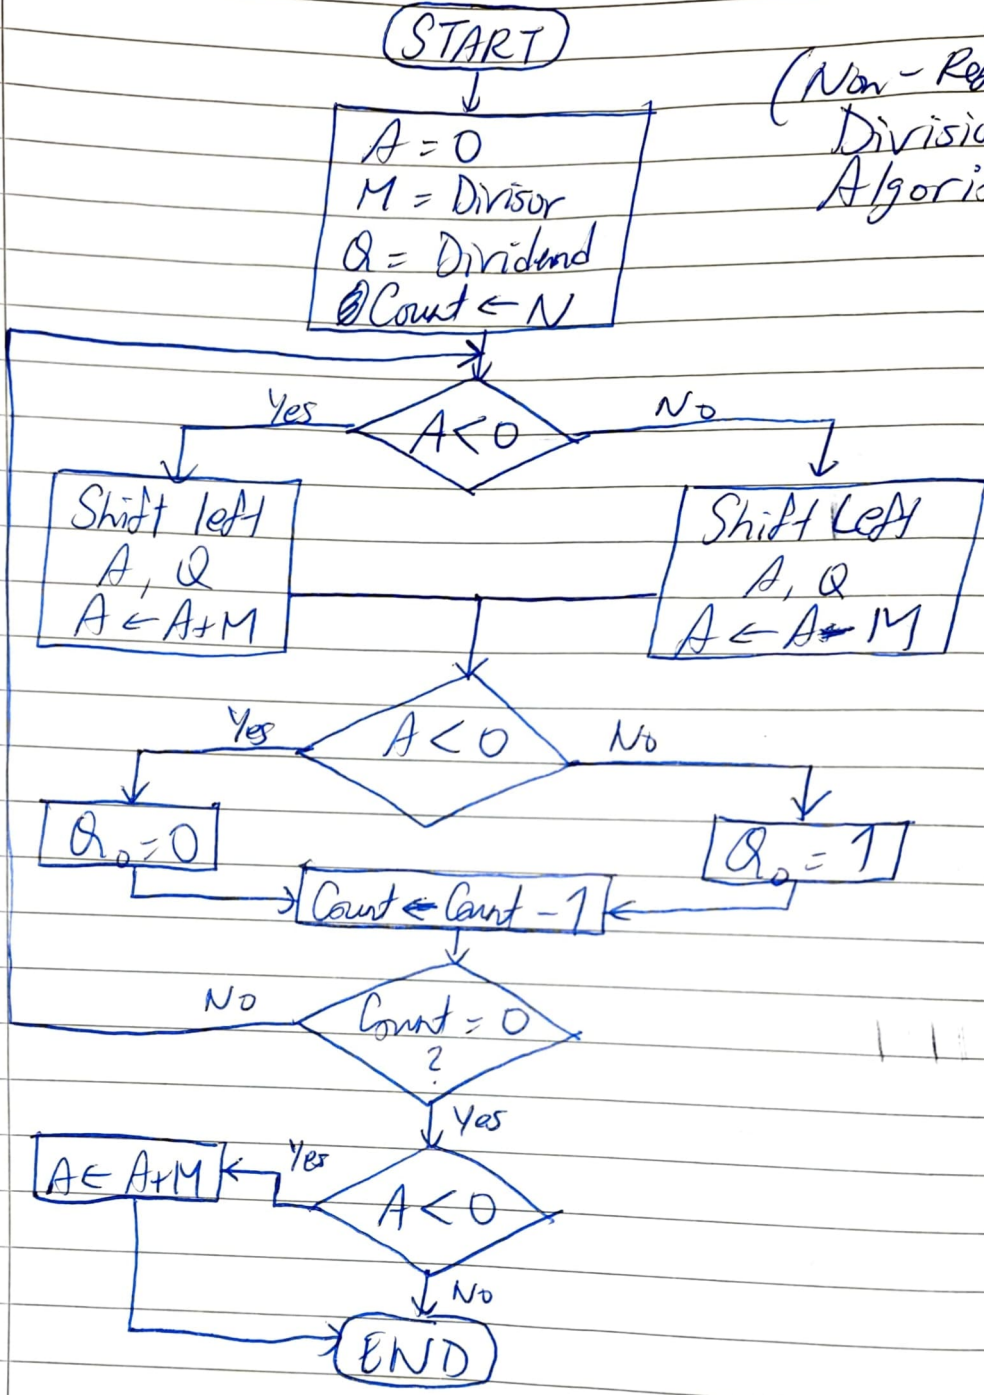 START
(Non-Res
Divisio
Algori
A = 0
M = Divisor
Q = Dividend
Count ← N
Yes
A < 0
No
Shift left
A, Q
A ← A+M
Shift Left
A, Q
A ← A - M
Yes
A < 0
No
Q₀ = 0
Q₀ = 1
Count ← Count - 1
No
Count = 0
?
Yes
A ← A+M
Yes
A < 0
No
END